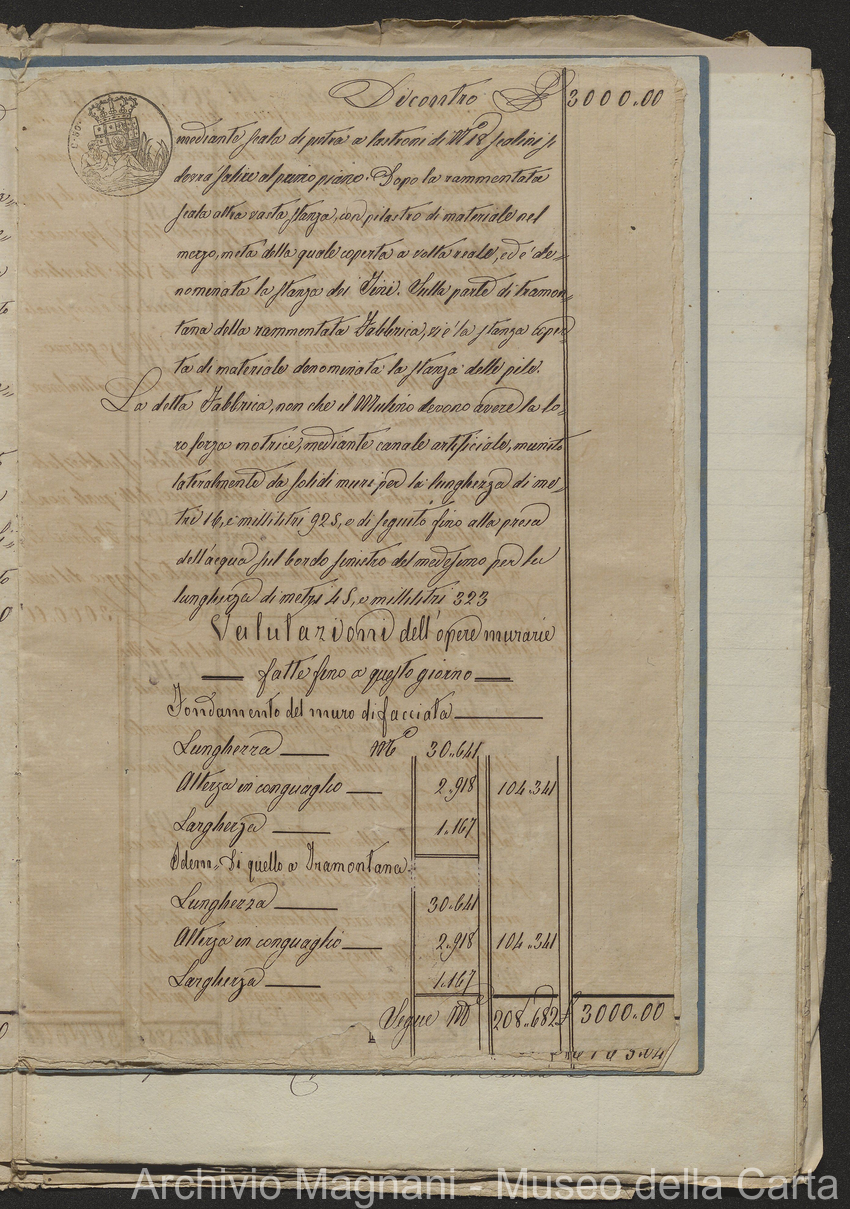 Dicontro £ 3000.00
mediante scala di pietra a lastroni di N.° 18 scalini si
dovrà salire al primo piano. Dopo la rammentata
scala altra vasta stanza, con pilastro di materiale nel
mezzo, metà della quale coperta a volta reale, ed é de-
nominata la stanza dei Tini. Sulla parte di tramon-
tana della rammentata Fabbrica, vi é la stanza coper
ta di materiale denominata la stanza delle pile.
La detta Fabbrica, non che il Mulino devono avere la lo-
ro forza motrice, mediante canale artificiale, munito
lateralmente da solidi muri per la lunghezza di me-
tri 16, e millilitri 925, e di seguito fino alla presa
dell'acqua sul bordo sinistro del medesimo per la
lunghezza di metri 45, e millilitri 323
Valutazioni dell'opere murarie
fatte fino a questo giorno
Fondamento del muro di facciata
Lunghezza M.e 30.641
Altezza in conguaglio 2.918 104.341
Larghezza 1.167
Idem Di quello a Tramontana
Lunghezza 30.641
Altezza in conguaglio 2.918 104.341
Larghezza 1.167
Segue M.e 208.682 £ 3000.00
Archivio Magnani - Museo della Carta